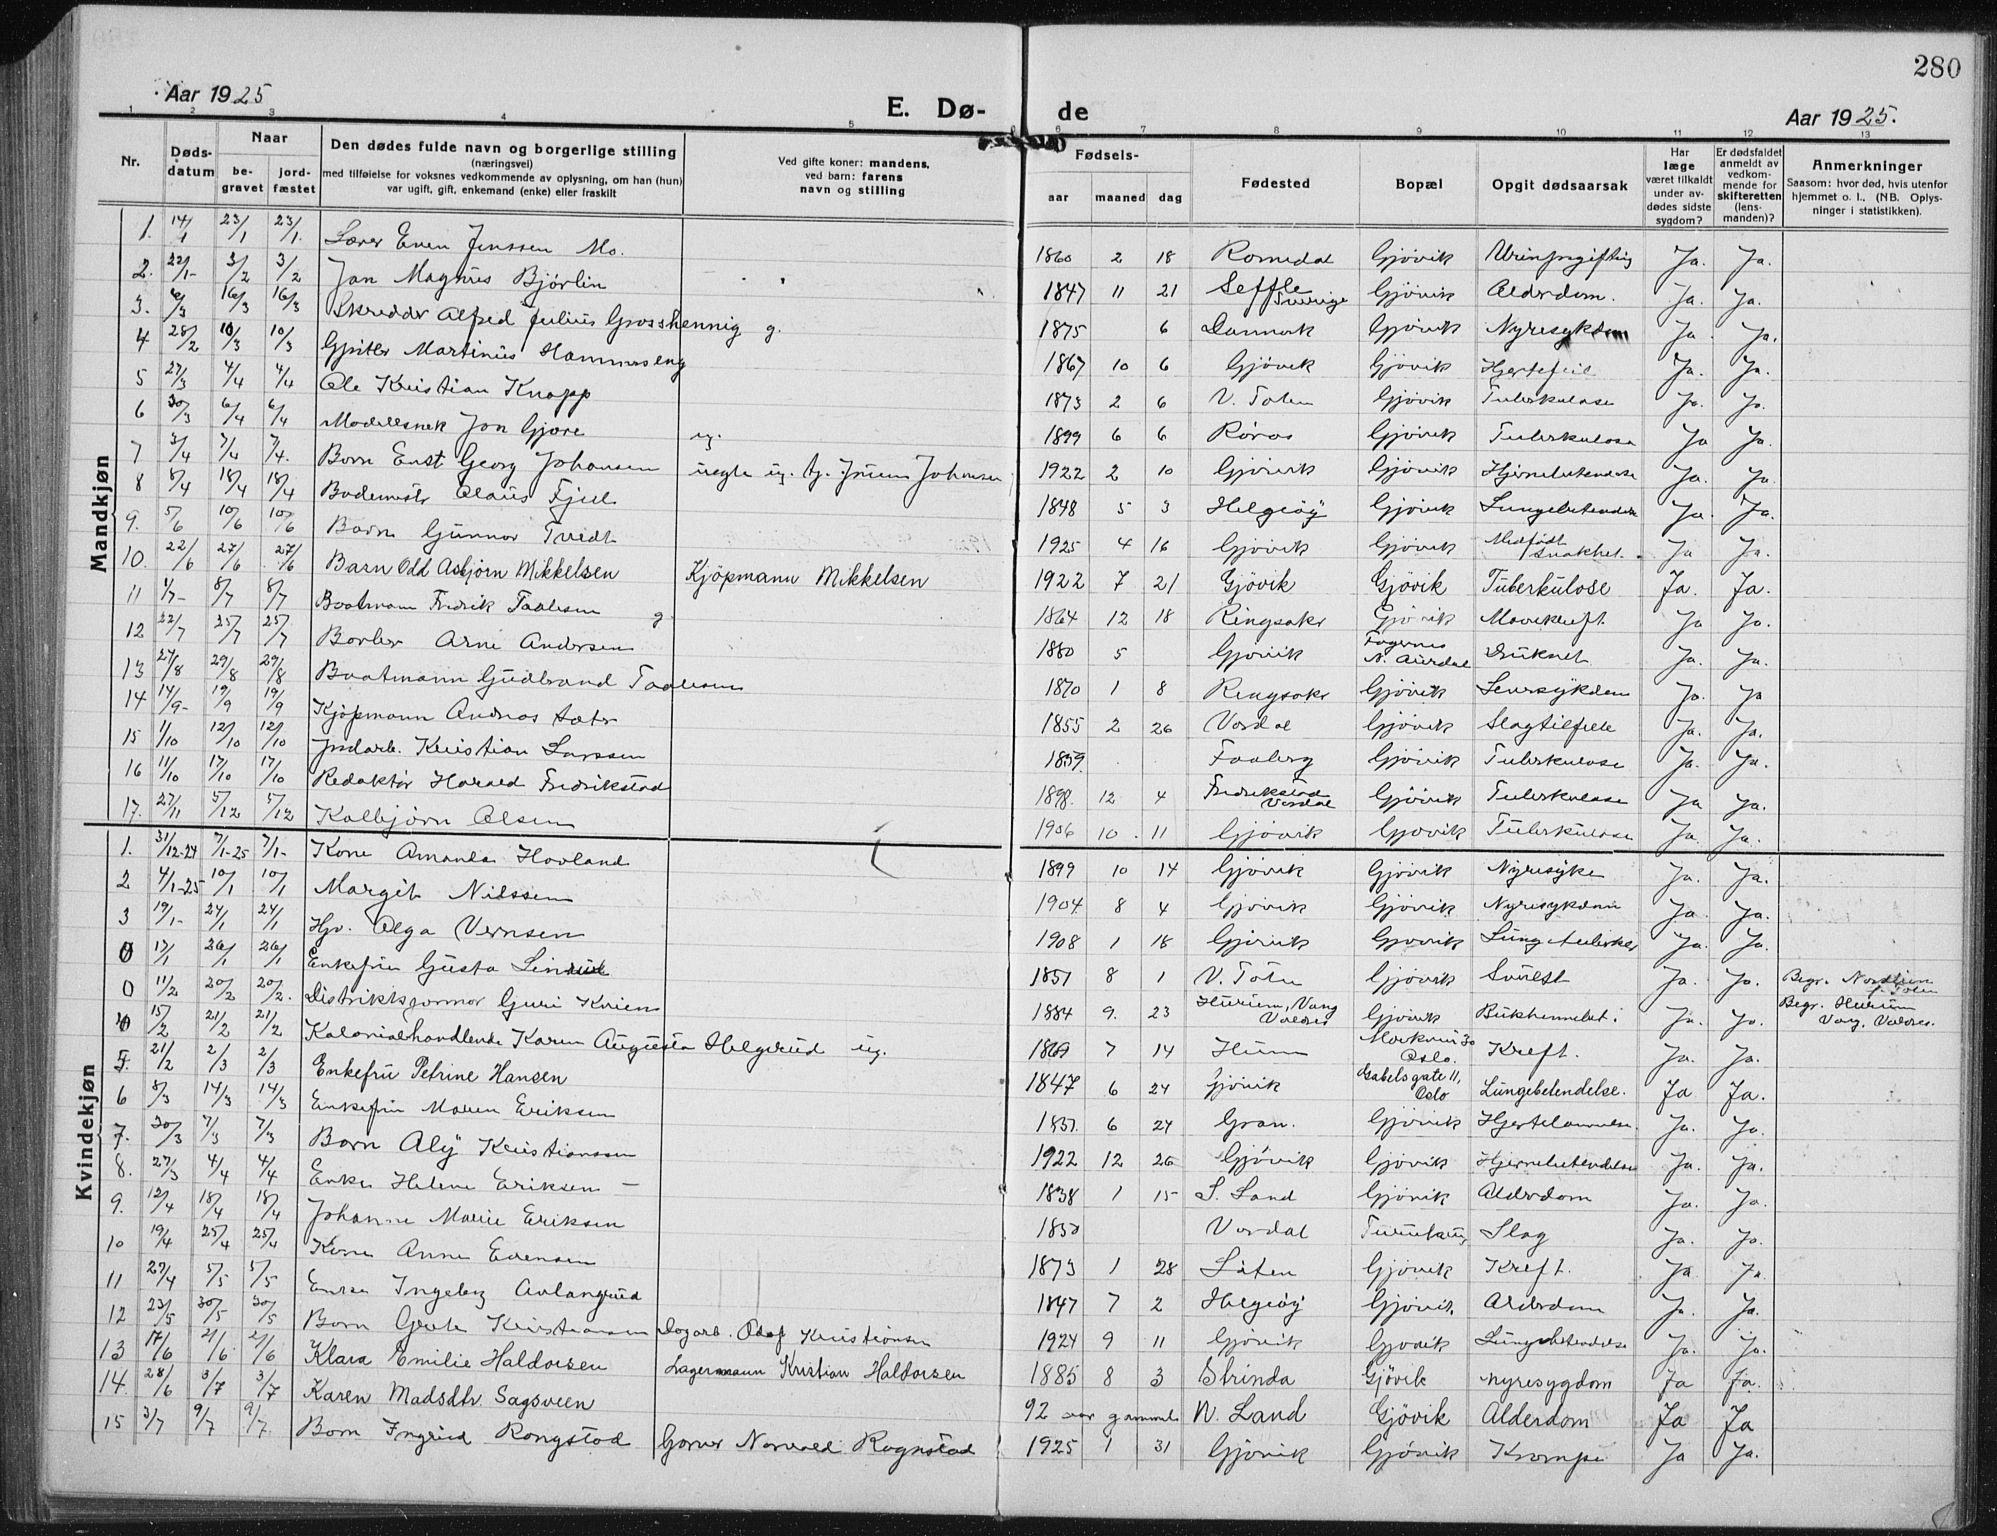 280
Aar 1925
E. Dø-
de
Aar 1925.
1 2 3 4 5 6 7 8 9 10 11 12 13
Nr.
Døds-
datum
Naar
be-
gravet
jord-
fæstet
Den dødes fulde navn og borgerlige stilling
(næringsvei)
med tilføielse for voksnes vedkommende av oplysning, om han (hun)
var ugift, gift, enkemand (enke) eller fraskilt
Ved gifte koner: mandens,
ved barn: farens
navn og stilling
Fødsels-
aar maaned dag
Fødested
Bopæl
Opgit dødsaarsak
Har
læge
været tilkaldt
under av-
dødes sidste
sygdom?
Er dødsfaldet
anmeldt av
vedkom-
mende for
skifteretten
(lens-
manden)?
Anmerkninger
Saasom: hvor død, hvis utenfor
hjemmet o. l., (NB. Oplys-
ninger i statistikken).
Mandkjøn
1. 14/1 23/1 23/1. Lærer Even Jenssen Mo. 1860 2 18 Romedal Gjøvik Urinforgiftning Ja. Ja.
2. 22/1- 3/2 3/2 Jan Magnus Bjørlin 1847 11 21 Seffle Sverige Gjøvik Alderdom. Ja. Ja.
3. 6/3 16/3 16/3 Skrædder Alfred Julius Grosshennig g. 1875 6 Danmark Gjøvik Nyresykdom Ja. Ja.
4 28/2 10/3 10/3 Martinus Hammerseng 1867 10 6 Gjøvik Gjøvik Hjertefeil Ja. Ja.
5 27/3 4/4 4/4 Ole Kristian Knapp 1873 2 6 V. Toten Gjøvik Tuberkulose Ja. Ja.
6 30/3 6/4 6/4 Modellsnek Jon Gjøre ug. 1899 6 6 Røros Gjøvik Tuberkulose Ja Ja.
7 3/4 7/4 7/4. Barn Enst Georg Johansen uegte ug. Johansen 1922 2 10 Gjøvik Gjøvik Hjernebetendelse Ja. Ja.
8 8/4 18/4 18/4 Bademstr Olaus Fjeld 1848 5 3 Helgøy Gjøvik Lungebetendelse Ja. Ja.
9. 5/6 10/6 10/6 Barn Gunnar Tvedt 1925 4 16 Gjøvik Gjøvik Medfødt Svakhet. Ja Ja.
10. 22/6 27/6 27/6 Barn Odd Asbjørn Mikkelsen Kjöpmann Mikkelsen 1922 7 21 Gjövik Gjövik Tuberkulose Ja. Ja.
11 1/7- 8/7 8/7 Baatmann Fredrik Taalesen g 1864 12 18 Ringsaker Gjøvik Mavekreft. Ja Ja.
12 22/7 25/7 25/7 Barber Arne Andersen 1880 5 Gjøvik Fagernes N. Aurdal Druknet Ja. Ja.
13 27/8 29/8 29/8 Baatmann Gudbrand Taalesen 1870 1 8 Ringsaker Gjøvik Leversykdom Ja. Ja
14 14/9- 19/9 19/9 Kjøpmann Andreas Sæter 1855 2 26 Vardal Gjøvik Slagtilfelle Ja. Ja.
15 1/10 12/10 12/10 Jndarb. Kristian Larssen 1859. Faaberg Gjøvik Tuberkulose Ja. Ja.
16 11/10 17/10 17/10 Redaktør Harald Fredrikstad 1898. 12 4 Fredrikstad Vardal Gjøvik Tuberkulose Ja Ja.
17. 27/11 5/12 5/12 Kolbjørn Olsen 1906 10 11 Gjøvik Gjøvik Tuberkulose Ja. Ja.
Kvindekjøn
1. 31/12-24 7/1-25 7/1- Kone Amanda Hovland 1899 10 14 Gjøvik Gjøvik Nyresyke Ja. Ja.
2 4/1-25 10/1 10/1 Margit Nilssen 1904 8 4 Gjøvik Gjøvik Nyresykdom Ja. Ja.
3 19/1- 24/1 24/1 Hjv. Olga Vernsen 1908 1 18 Gjøvik Gjøvik Lungetuberkel Ja. Ja.
0 17/1 26/1 26/1 Enkefru Gusta 1851 8 1 V. Toten Gjøvik Ja. Ja. Begr. Toten
0 11/2 20/2 20/2. Distriktsjormor Guri Kvien 1884 9. 23 Hurum, Vang Valdres Gjøvik Bukhinnebet. Ja. Ja. Begr. Hurum Vang, Valdres.
4 15/2 21/2 21/2 Kolonialhandlende Karen Augusta Helgerud ug. 1869 7 14 Oslo. Kreft. Ja. Ja.
5. 21/2 2/3 2/3 Enkefru Petrine Hansen 1847 6 24 Gjøvik Gabelsgate 11, Oslo Lungebetendelse. Ja Ja.
6 8/3 14/3 14/3 Enkefru Maren Eriksen 1837. 6 24 Gran. Gjøvik Ja. Ja.
7. 30/3 7/3 7/3 Barn Aly Kristianssen 1922 12 26 Gjøvik Gjøvik Hjernebetendelse Ja. Ja.
8. 27/3 4/4 4/4 Enke Helene Eriksen - 1838 1 15 S. Land Gjøvik Alderdom Ja. Ja.
9. 12/4 18/4 18/4 Johanne Marie Eriksen 1850 Vardal Slag Ja. Ja.
10 19/4 25/4 25/4 Kone Anne Evensen 1873 1 28 Løten Gjøvik Kreft. Ja. Ja.
11 27/4 5/5 5/5 Enke Ingeborg 1847 7 2 Helgøy Gjøvik Alderdom Ja. Ja.
12 23/5 30/5 30/5 Barn Grete Kristiansen Dagarb. Olaf Kristiansen 1924 9 11 Gjøvik Gjøvik Lungebetendelse Ja. Ja.
13 17/6 21/6 21/6 Klara Emilie Haldorsen Lagermann Kristian Haldorsen 1885 8 3 Strinda Gjövik nyresygdom Ja Ja.
14. 28/6 3/7 3/7 Karen Madsdtr. Sagsveen 92 aar gammel N. Land Gjövik Alderdom Ja Ja
15 3/7 9/7 9/7. Barn Ingrid Rongstad Garver Norvald Rognstad 1925 1 31 Gjøvik Gjøvik Krampe Ja Ja.